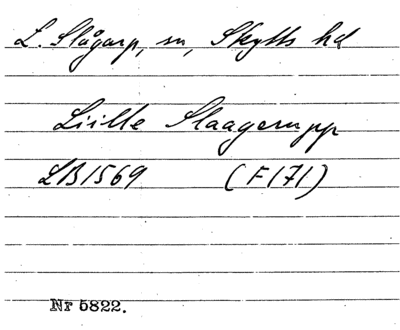 L. Slågarp, sn, Skytts hd
Liille Slaagerupp
LB1569 (F171)
Nr 5822.